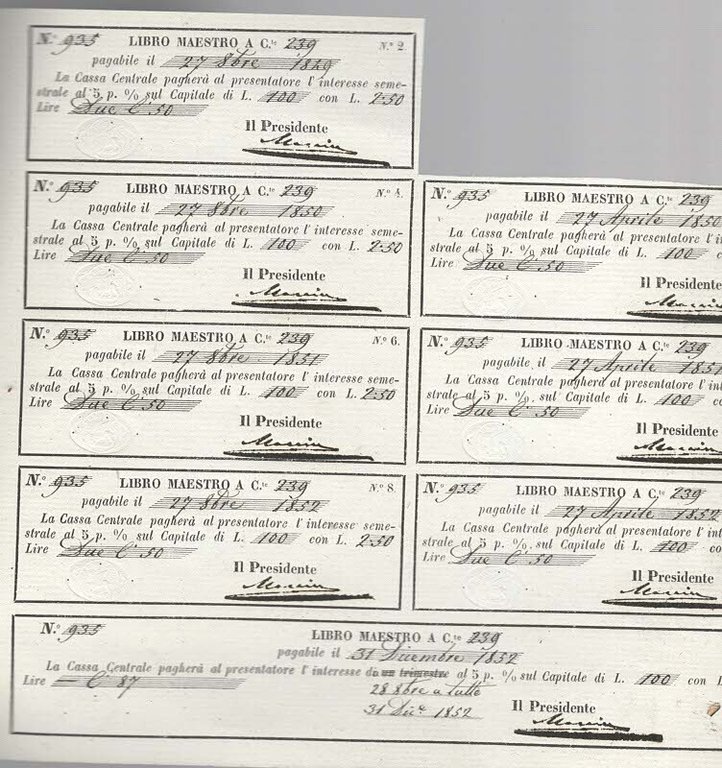 N.º 935 LIBRO MAESTRO A C.te 239 N.º 2.
pagabile il 27 8bre 1849
La Cassa Centrale pagherà al presentatore l' interesse seme-
strale al 5 p. % sul Capitale di L. 100 con L. 2=50
Lire Due C.i 50
Il Presidente
N.º 935 LIBRO MAESTRO A C.te 239 N.º 4.
pagabile il 27 8bre 1850
La Cassa Centrale pagherà al presentatore l' interesse seme-
strale al 5 p. % sul Capitale di L. 100 con L. 2=50
Lire Due C.i 50
Il Presidente
N.º 935 LIBRO MAESTRO A C.te 239
pagabile il 27 Aprile 1850
La Cassa Centrale pagherà al presentatore l' i
strale al 5 p. % sul Capitale di L. 100 c
Lire Due C.i 50
Il Presidente
N.º 935 LIBRO MAESTRO A C.te 239 N.º 6.
pagabile il 27 8bre 1851
La Cassa Centrale pagherà al presentatore l' interesse seme-
strale al 5 p. % sul Capitale di L. 100 con L. 2=50
Lire Due C.i 50
Il Presidente
N.º 935 LIBRO MAESTRO A C.te 239
pagabile il 27 Aprile 1851
La Cassa Centrale pagherà al presentatore l' int
strale al 5 p. % sul Capitale di L. 100 c
Lire Due C.i 50
Il Presidente
N.º 935 LIBRO MAESTRO A C.te 239 N.º 8.
pagabile il 27 8bre 1852
La Cassa Centrale pagherà al presentatore l' interesse seme-
strale al 5 p. % sul Capitale di L. 100 con L. 2=50
Lire Due C.i 50
Il Presidente
N.º 935 LIBRO MAESTRO A C.te 239
pagabile il 27 Aprile 1852
La Cassa Centrale pagherà al presentatore l' int
strale al 5 p. % sul Capitale di L. 100 co
Lire Due C.i 50
Il Presidente
N.º 935 LIBRO MAESTRO A C.te 239
pagabile il 31 Dicembre 1852
La Cassa Centrale pagherà al presentatore l' interesse di un trimestre al 5 p. % sul Capitale di L. 100 con L
Lire = C.i 87
28 8bre a tutto
31 Dic.e 1852
Il Presidente